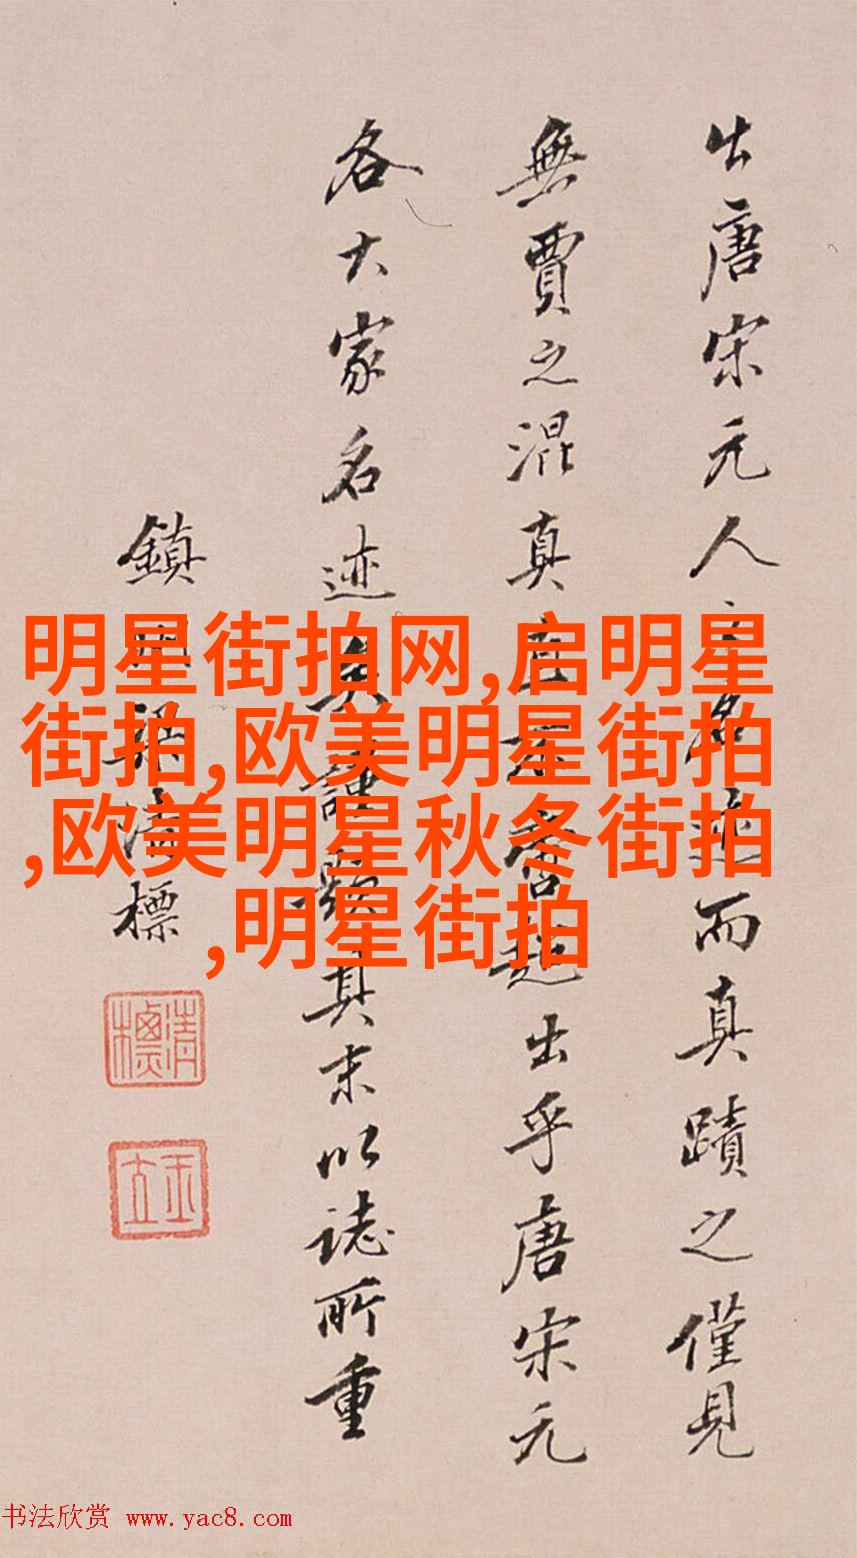 出唐宋元人之名迹而真蹟之僅見
無賈之混真直不啻超出乎唐宋元
各大家名迹矣謹題其末以誌所重
鎮州梁清標
清標
玉立
明星街拍网,启明星
街拍,欧美明星街拍
,欧美明星秋冬街拍
,明星街拍
书法欣赏 www.yac8.com